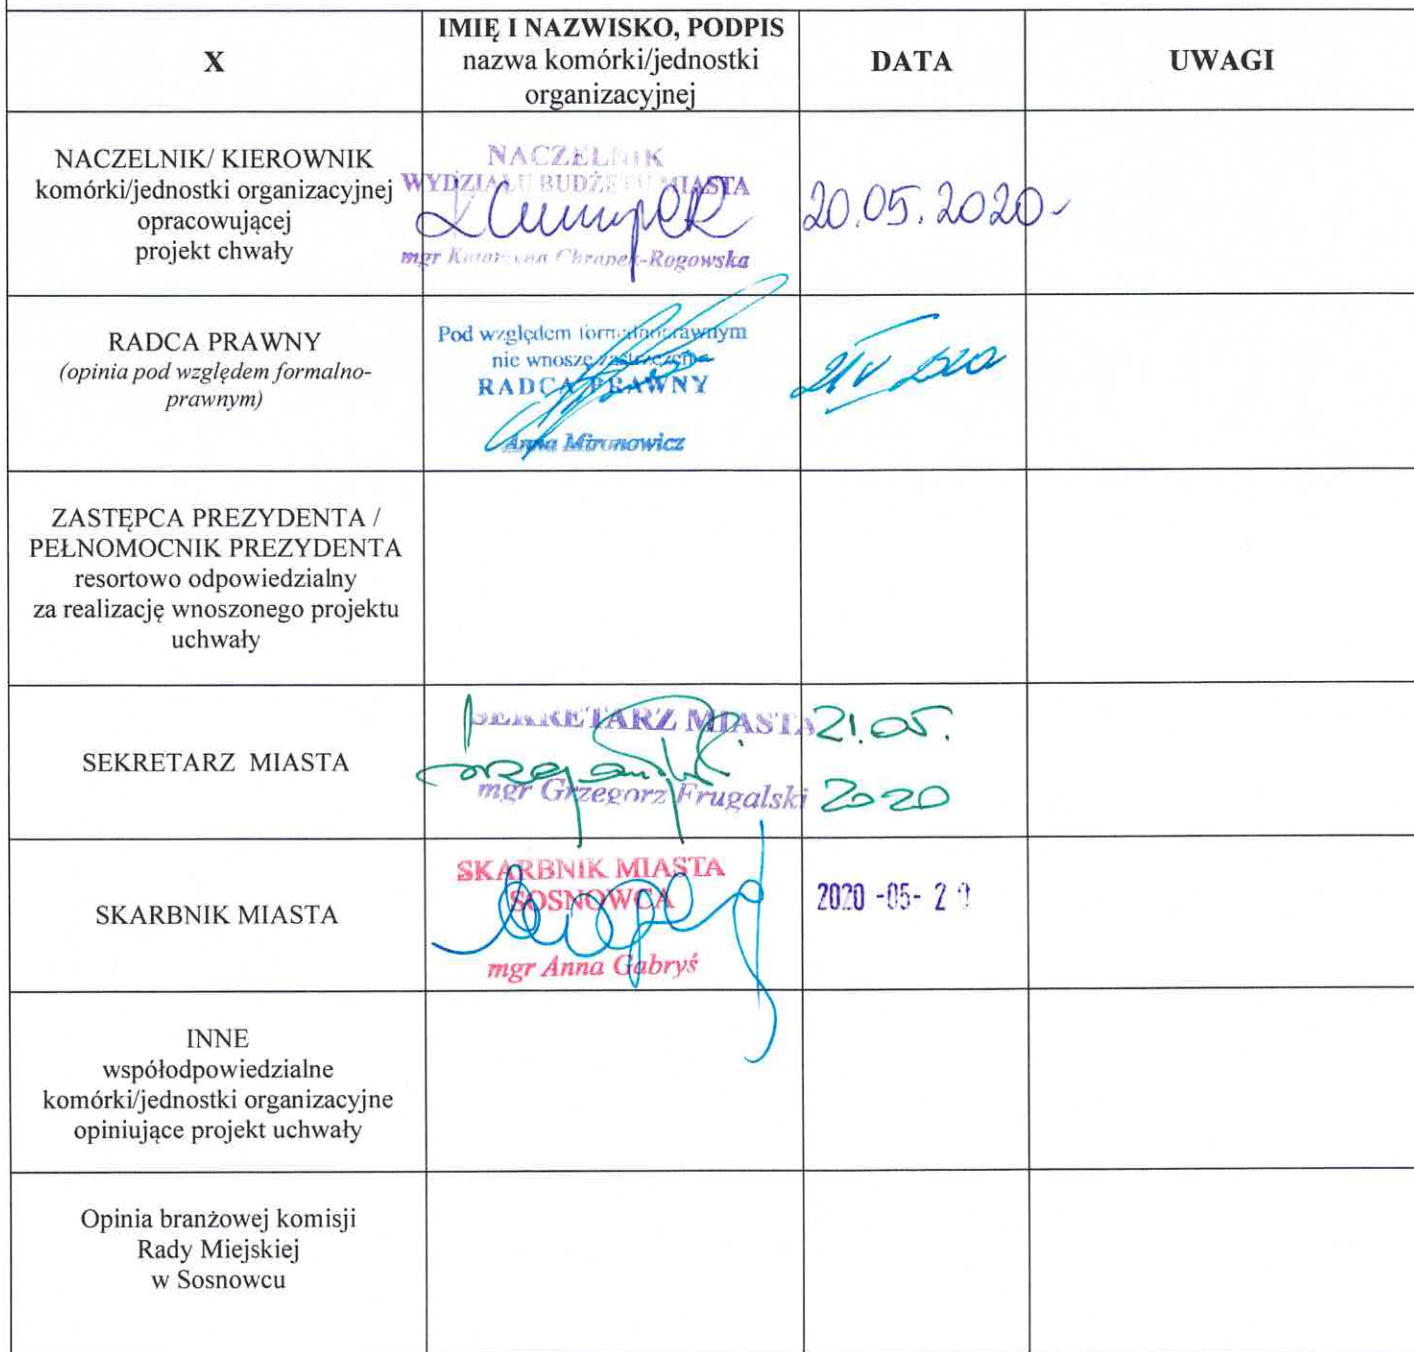 X
IMIĘ I NAZWISKO, PODPIS
nazwa komórki/jednostki
organizacyjnej
DATA
UWAGI
NACZELNIK/ KIEROWNIK
komórki/jednostki organizacyjnej
opracowującej
projekt chwały
NACZELNIK
WYDZIAŁU BUDŻETU MIASTA
mgr Katarzyna Chrapek-Rogowska
20.05.2020
RADCA PRAWNY
(opinia pod względem formalno-
prawnym)
Pod względem formalnoprawnym
nie wnoszę zastrzeżenia
RADCA PRAWNY
Anna Mironowicz
21 V 2020
ZASTĘPCA PREZYDENTA /
PEŁNOMOCNIK PREZYDENTA
resortowo odpowiedzialny
za realizację wnoszonego projektu
uchwały
SEKRETARZ MIASTA
SEKRETARZ MIASTA
mgr Grzegorz Frugalski
21.05.
2020
SKARBNIK MIASTA
SKARBNIK MIASTA
SOSNOWCA
mgr Anna Gabryś
2020 -05-
INNE
współodpowiedzialne
komórki/jednostki organizacyjne
opiniujące projekt uchwały
Opinia branżowej komisji
Rady Miejskiej
w Sosnowcu